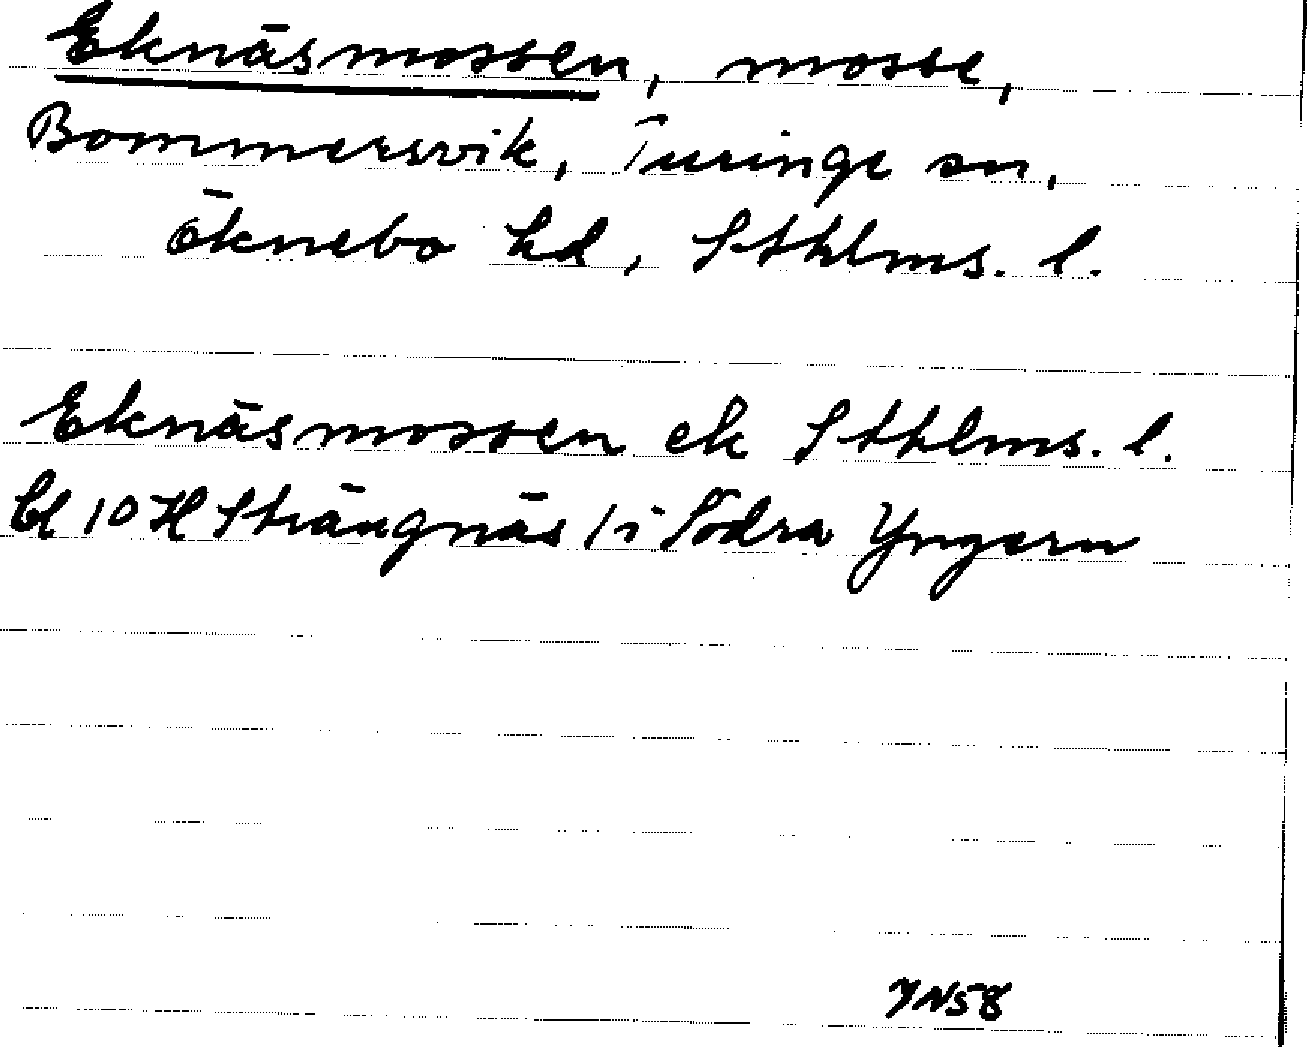 Eknäsmossen, mosse,
Bommersvik, Turinge sn,
Öknebo hd, Sthlms. l.
Eknäsmossen ek Sthlms. l.
bl 10 H Strängnäs / i Södra Yngern